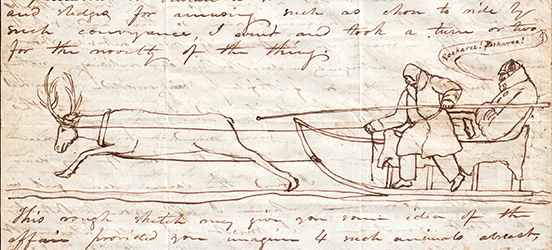 and sledges for amusing such as chose to ride by
such conveyance, I went and took a turn or two
for the novelty of the thing.
Posharee! Posharee!
This rough sketch may give you some idea of the
affair provided you imagine 4 such animals abreast